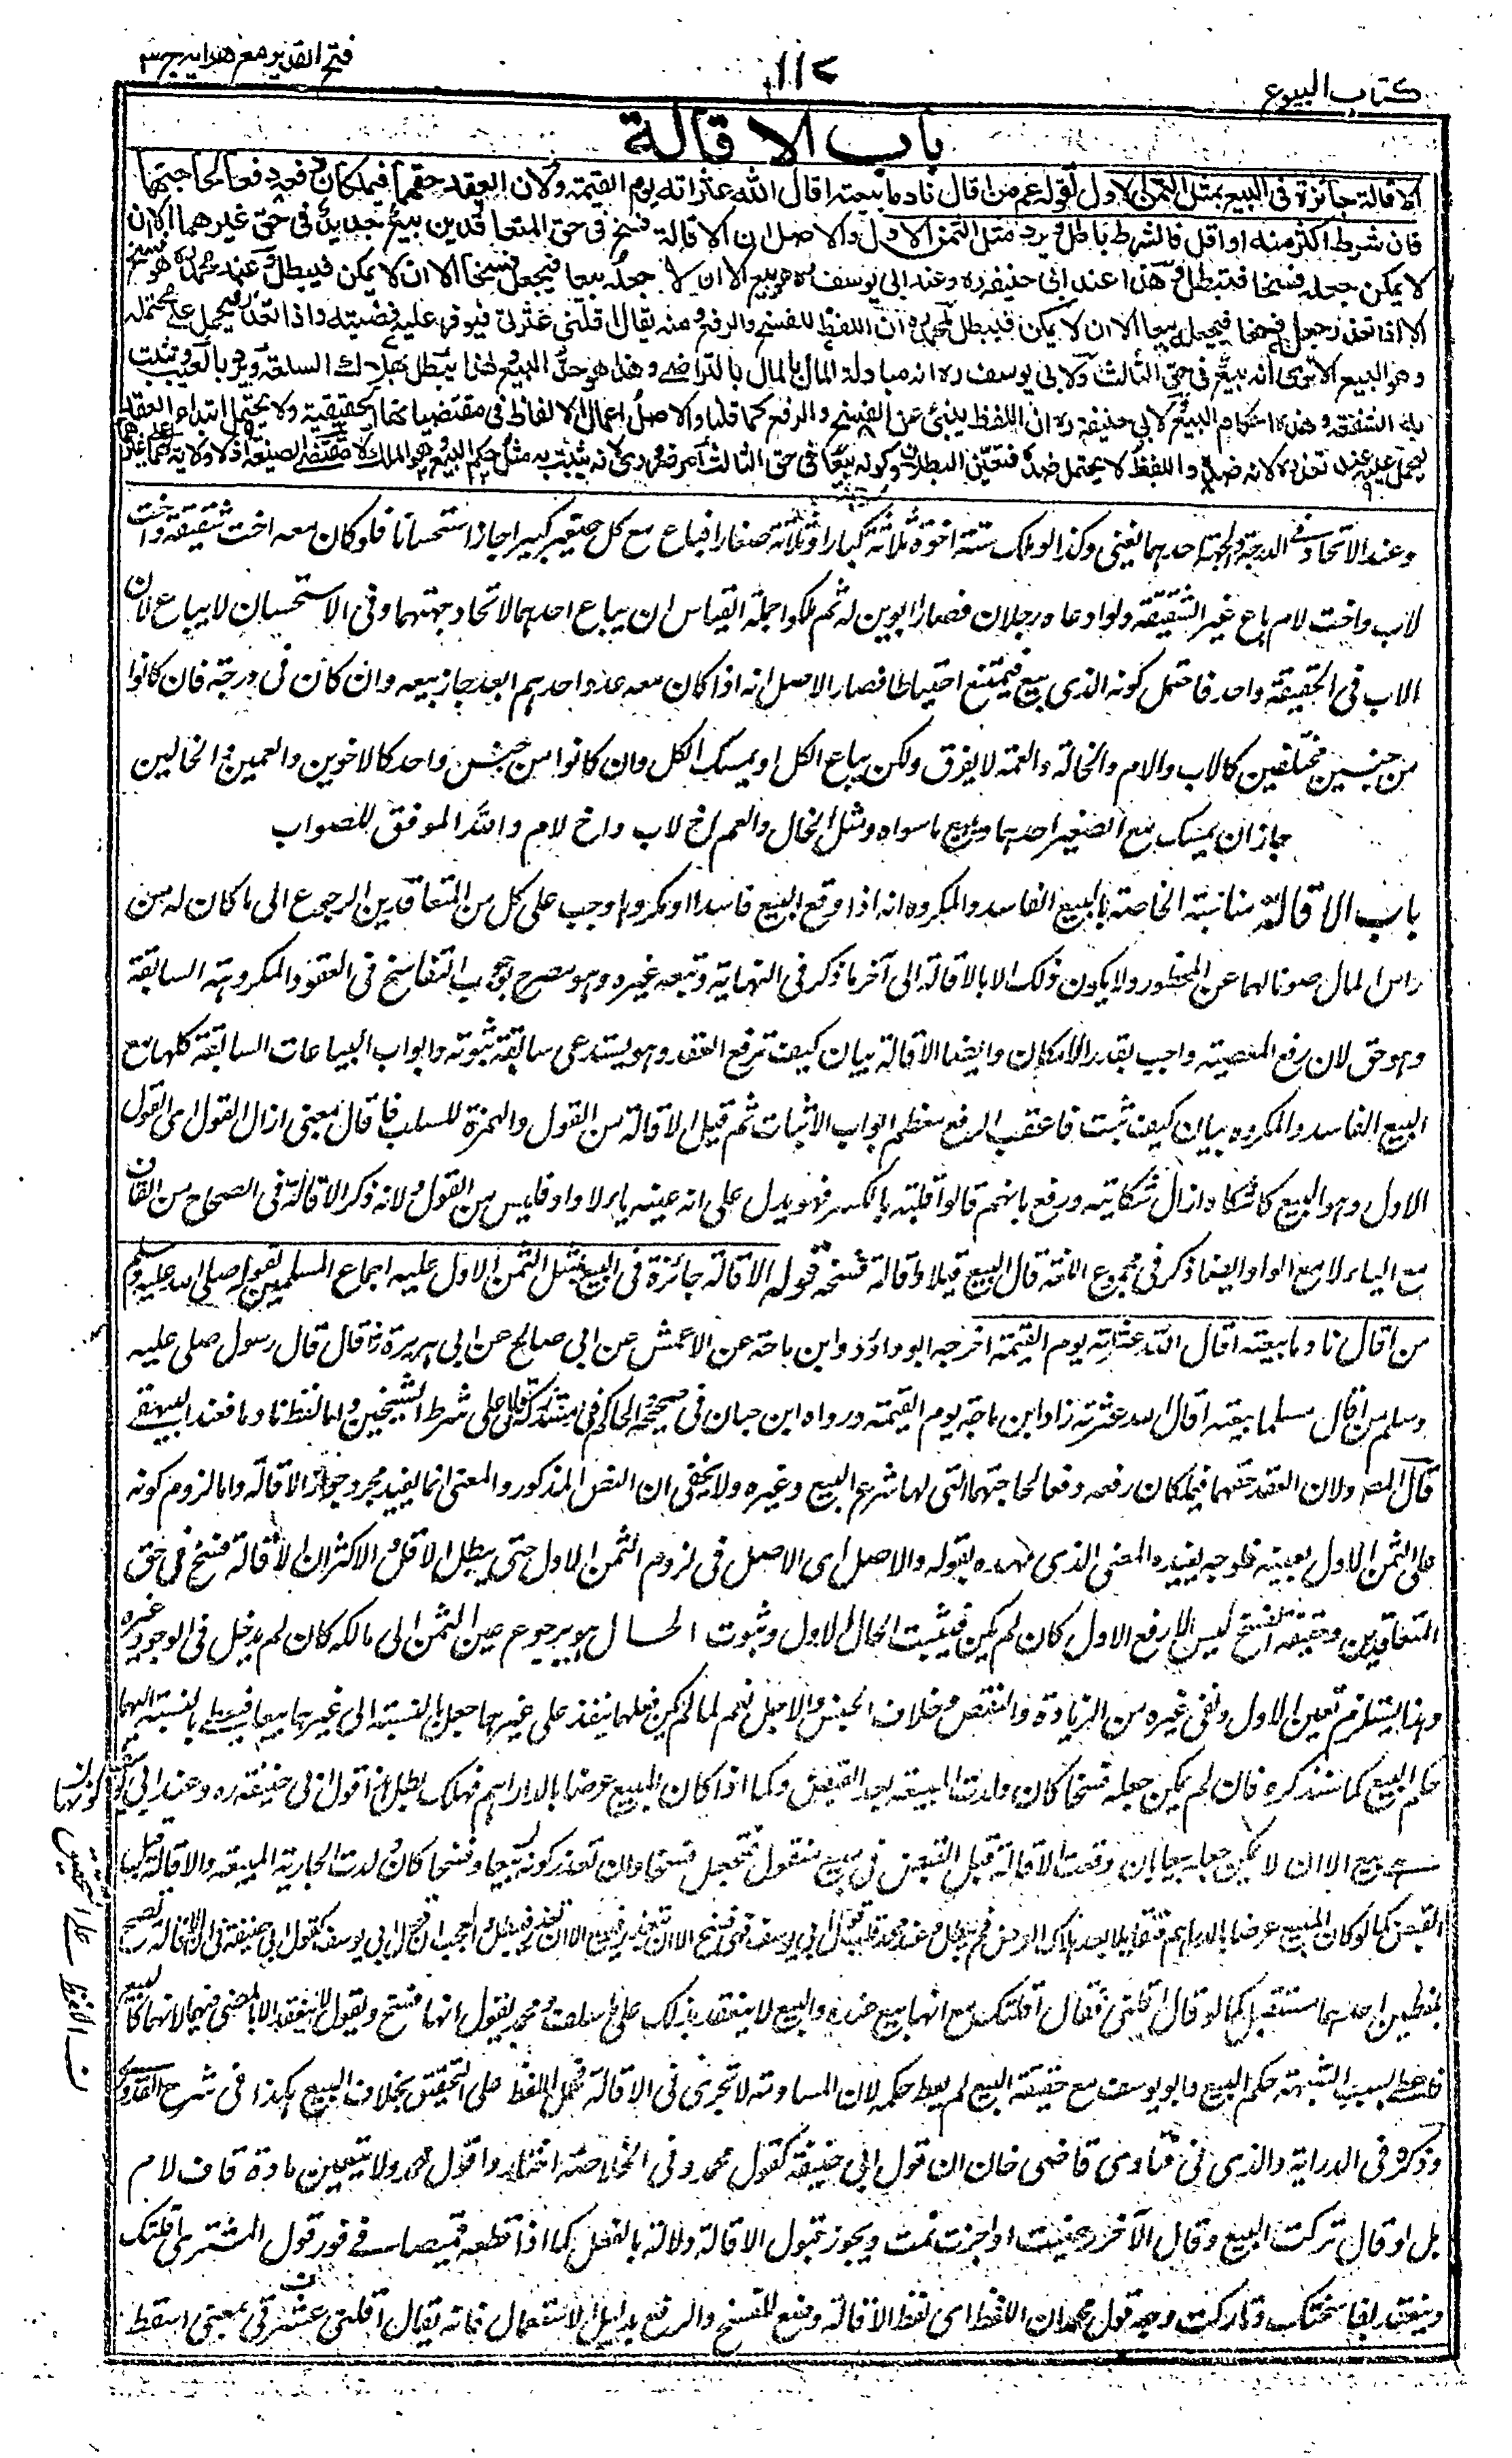 كتاب البيوع
١١٧
فتح القدير مع هدايه ج ٣
باب الاقالة
الاقالة جائزة فى البيع بمثل الثمن الاول لقوله عم من اقال نادما بيعته اقال الله عثراته يوم القيمة ولان العقد حقهما فيملكان رفعه دفعا لحاجتهما
فان شرط اكثر منه او اقل فالشرط باطل ويرد مثل الثمن الاول والاصل ان الاقالة فسخ فى حق المتعاقدين بيع جديد فى حق غيرهما الا ان
لا يمكن جعله فسخا فتبطل وهذا عند ابى حنيفة ره وعند ابى يوسف ره هو بيع الا ان لا يمكن جعله بيعا فيجعل فسخا الا ان لا يمكن فيبطل وعند محمد ره هو فسخ
الا اذا تعذر جعله فسخا فيجعل بيعا الا ان لا يمكن فيبطل لمحمد ره ان اللفظ للفسخ والرفع ومنه يقال اقلنى عثرتى فيوفر عليه قضيته واذا تعذر يحمل على محتمله
وهو البيع الا ترى انه بيع فى حق الثالث ولابى يوسف ره انه مبادلة المال بالمال بالتراضى وهذا هو حد البيع ولهذا يبطل بهلاك السلعة ويرد بالعيب وتثبت
به الشفعة وهذه احكام البيع ولابى حنيفة ره ان اللفظ ينبئ عن الفسخ والرفع كما قلنا والاصل اعمال الالفاظ فى مقتضياتها الحقيقية ولا يحتمل ابتداء العقد
ليحمل عليه عند تعذره لانه ضده واللفظ لا يحتمل ضده فتعين البطلان وكونه بيعا فى حق الثالث امر ضرورى لانه يثبت به مثل حكم البيع وهو الملك لا مقتضى الصيغة اذ لا ولاية لهما على غيرهما
وعند الاتحاد فى الدرجة والجهة احدهما يغنى وكذا لو ملك ستة اخوة ثلاثة كبارا وثلاثة صغارا فباع مع كل صغير كبيرا جاز استحسانا فلو كان معه اخت شقيقة واخت
لاب واخت لام باع غير الشقيقة ولو ادعاه رجلان فصارا ابوين له ثم ملكوا جملة القياس ان يباع احدهما لاتحاد جهتهما وفى الاستحسان لا يباع لان
الاب فى الحقيقة واحد فاحتمل كونه الذى بيع فيمتنع احتياطا فصار الاصل انه اذا كان معه عدد احدهم ابعد جاز بيعه وان كان فى درجة فان كانوا
من جنسين مختلفين كالاب والام والخالة والعمة لا يفرق ولكن يباع الكل او يمسك الكل وان كانوا من جنس واحد كالاخوين والعمين والخالين
جاز ان يمسك مع الصغير احدهما ويبيع ما سواه ومثل الخال والعم اخ لاب واخ لام والله الموفق للصواب
باب الاقالة مناسبته الخاصة بالبيع الفاسد والمكروه انه اذا وقع البيع فاسدا او مكروها وجب على كل من المتعاقدين الرجوع الى ما كان له من
راس المال صونا لهما عن المحظور ولا يكون ذلك الا بالاقالة الى آخر ما ذكر فى النهاية وتبعه غيره وهو مصرح بوجوب التفاسخ فى العقود المكروهة السابقة
وهو حق لان رفع المعصية واجب بقدر الامكان وايضا الاقالة بيان كيف ترفع العقد وهو يستدعى سابقة ثبوته وابواب البياعات السابقة كلها مع
البيع الفاسد والمكروه بيان كيف ثبت فاعقب الرفع معظم ابواب الاثبات ثم قيل الاقالة من القول والهمزة للسلب فاقال بمعنى ازال القول اى القول
الاول وهو البيع كاشكاه ازال شكايته ورفع بانهم قالوا قلته بالكسر فهو يدل على ان عينه ياء لا واو فليس من القول ولانه ذكر الاقالة فى الصحاح من القاف
مع الياء لا مع الواو وايضا ذكر فى مجموع اللغة قال البيع قيلا واقالة فسخه قوله الاقالة جائزة فى البيع بمثل الثمن الاول عليه اجماع المسلمين لقوله صلى الله عليه وسلم
من اقال نادما بيعته اقال الله عثرته يوم القيمة اخرجه ابو داؤد وابن ماجة عن الاعمش عن ابى صالح عن ابى هريرة رض قال قال رسول صلى عليه
وسلم من اقال مسلما بيعته اقال الله عثرته زاد ابن ماجة يوم القيمة ورواه ابن حبان فى صحيحه والحاكم فى مستدركه وقال على شرط الشيخين واما لفظ نادما فعند البيهقى
قال المصـ ولان العقد حقهما فيملكان رفعه دفعا لحاجتهما التى لها شرع البيع وغيره ولا يخفى ان النص المذكور والمعنى انما يفيد مجرد جواز الاقالة واما لزوم كونه
على الثمن الاول بعينه فلوجه يفيده المعنى الذى مهده بقوله والاصل اى الاصل فى لزوم الثمن الاول حتى يبطل الاقل والاكثر ان الاقالة فسخ فى حق
المتعاقدين وحقيقة الفسخ ليس الا رفع الاول كان لم يكن فيثبت الحال الاول وثبوت الحال هو برجوع عين الثمن الى مالكه كان لم يدخل فى الوجود غيره
وهذا يستلزم تعين الاول ونفى غيره من الزيادة والنقص وخلاف الجنس والاجل نعم لما لم يكن فعلهما ينفذ على غيرهما جعل بالنسبة الى غيرهما بيعا فيعطى بالنسبة اليهما
حكم البيع كما سنذكره فان لم يمكن جعله فسخا كان ولدت المبيعة بعد القبض وكما اذا كان المبيع عرضا بالدراهم فهلك بطل هذا قول ابى حنيفة ره وعند ابى
بيع الا ان لا يمكن جعله بيعا بان وقعت الاقالة قبل القبض فى مبيع منقول فتجعل فسخا وان تعذر كونه بيعا وفسخا كان ولدت الجارية المبيعة والاقالة قبل
القبض كما لو كان المبيع عرضا بالدراهم
بلفظين احدهما مستقبل كما لو قال اقلنى فقال اقلتك مع انها بيع عنده والبيع لا ينعقد بذلك على ما سلف ومحمد يقول انها فسخ ويقول لا ينعقد الا بالمضى فيهما لانها كالبيع
فاعطى بسبب الشبهة حكم البيع وابو يوسف مع حقيقة البيع لم يعط حكمه لان المساومة لا تجرى فى الاقالة فحمل اللفظ على التحقيق بخلاف البيع هكذا فى شرح القدورى
وذكره فى الدراية والذى فى فتاوى قاضى خان ان قول ابى حنيفة كقول محمد وفى الخلاصة اختاروا قول محمد ولا يتعين مادة قاف لام
بل لو قال تركت البيع وقال الآخر رضيت او اجزت تمت ويجوز قبول الاقالة دلالة بالفعل كما اذا قطعه قميصا فى فور قول المشترى اقلتك
وينعقد بفاسختك وتاركت وجه قول محمد ان اللفظ اى لفظ الاقالة وضع للفسخ والرفع بدليل الاستعمال فانه يقال اقلنى عثرتى بمعنى اسقط